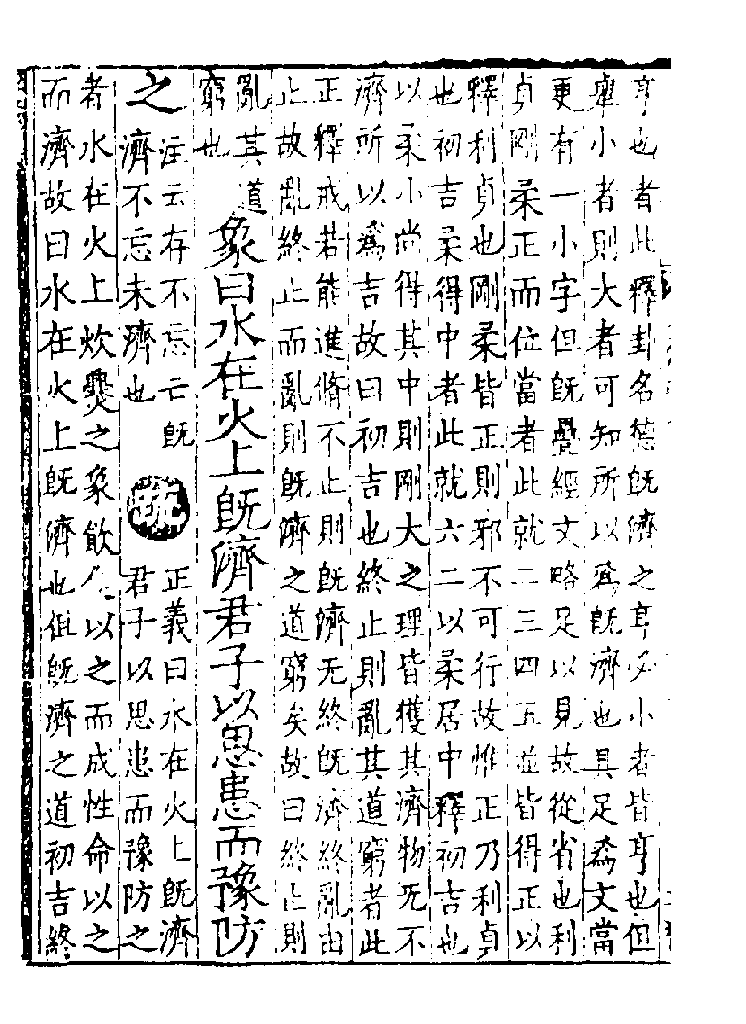 亨也者此釋卦名德旣濟之亨必小者皆亨也但
舉小者則大者可知所以爲旣濟也具足爲文當
更有一小字但旣疊經文略足以見故從省也利
貞剛柔正而位當者此就二三四五並皆得正以
釋利貞也剛柔皆正則邪不可行故惟正乃利貞
也初吉柔得中者此就六二以柔居中釋初吉也
以柔小尚得其中則剛大之理皆獲其濟物无不
濟所以爲吉故曰初吉也終止則亂其道窮者此
正釋戒若能進脩不止則旣濟无終旣濟終亂由
止故亂終止而亂則旣濟之道窮矣故曰終止則
亂其道
窮也
象曰水在火上旣濟君子以思患而豫防
之
注云存不忘亡旣
濟不忘未濟也
疏
正義曰水在火上旣濟
君子以思患而豫防之
者水在火上炊爨之象飲食以之而成性命以之
而濟故曰水在火上旣濟也但旣濟之道初吉終